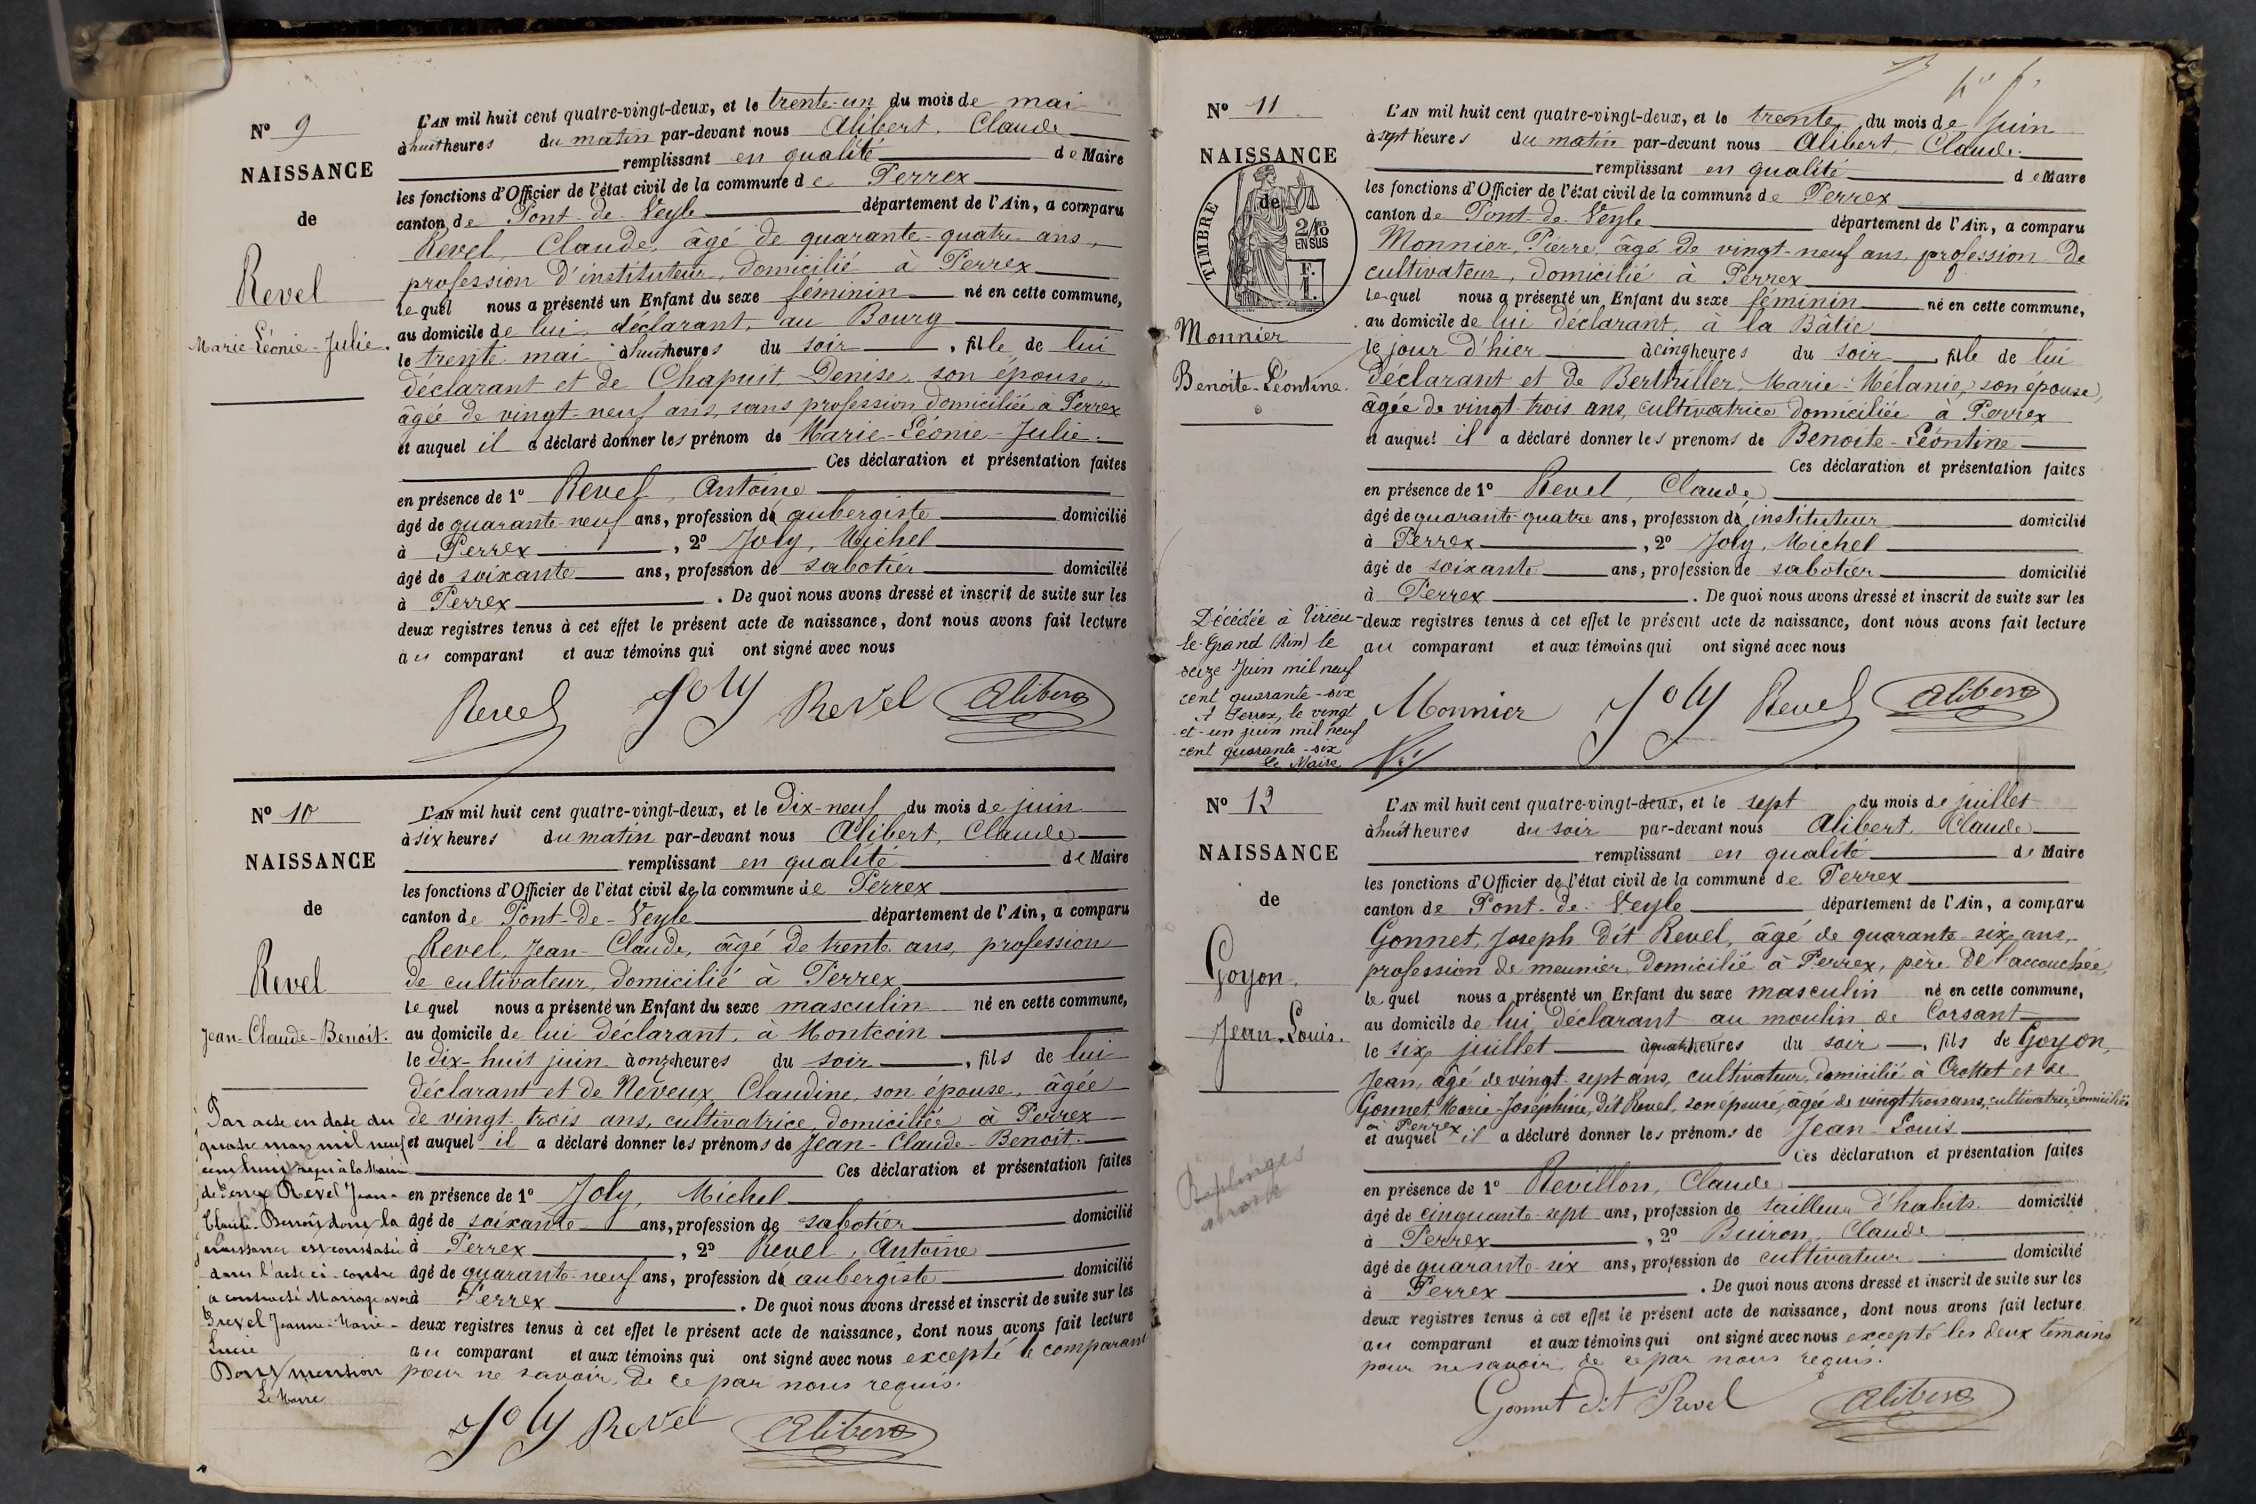 N° 9
NAISSANCE
de
Revel
Marie-Léonie-Julie.
L'AN mil huit cent quatre-vingt-deux, et le trente-un du mois de mai
à huit heures du matin par-devant nous Alibert, Claude
remplissant en qualité de Maire
les fonctions d'Officier de l'état civil de la commune de Perrex
canton de Pont-de-Veyle département de l'Ain, a comparu
Revel, Claude, âgé de quarante-quatre ans,
profession d'instituteur, domicilié à Perrex
lequel nous a présenté un Enfant du sexe féminin né en cette commune,
au domicile de lui, déclarant, au Bourg
le trente mai à huit heures du soir, fille de lui
déclarant et de Chapuit Denise, son épouse,
âgée de vingt-neuf ans, sans profession, domiciliée à Perrex
et auquel il a déclaré donner les prénom de Marie-Léonie-Julie.
Ces déclaration et présentation faites
en présence de 1° Revel, Antoine
âgé de quarante-neuf ans, profession de aubergiste domicilié
à Perrex, 2° Joly, Michel
âgé de soixante ans, profession de sabotier domicilié
à Perrex. De quoi nous avons dressé et inscrit de suite sur les
deux registres tenus à cet effet le présent acte de naissance, dont nous avons fait lecture
au comparant et aux témoins qui ont signé avec nous
Revel Joly Revel Alibert
N° 10
NAISSANCE
de
Revel
Jean-Claude-Benoit.
Par acte en date du
quatre mars mil neuf
cent huit reçu à la Mairie
de Perrex Revel Jean-
Claude-Benoît dont la
naissance est constatée
dans l'acte ci-contre
a contracté Mariage avec
Drevel Jeanne-Marie-
Lucie
Dont mention
Le Maire
L'AN mil huit cent quatre-vingt-deux, et le dix-neuf du mois de juin
à six heures du matin par-devant nous Alibert, Claude
remplissant en qualité de Maire
les fonctions d'Officier de l'état civil de la commune de Perrex
canton de Pont-de-Veyle département de l'Ain, a comparu
Revel, Jean-Claude, âgé de trente ans, profession
de cultivateur, domicilié à Perrex
lequel nous a présenté un Enfant du sexe masculin né en cette commune,
au domicile de lui déclarant, à Montcoin
le dix-huit juin à onze heures du soir, fils de lui
déclarant et de Neveux, Claudine, son épouse, âgée
de vingt-trois ans, cultivatrice, domiciliée à Perrex
et auquel il a déclaré donner les prénoms de Jean-Claude-Benoit.
Ces déclaration et présentation faites
en présence de 1° Joly, Michel
âgé de soixante ans, profession de sabotier domicilié
à Perrex, 2° Revel, Antoine
âgé de quarante-neuf ans, profession de aubergiste domicilié
à Perrex. De quoi nous avons dressé et inscrit de suite sur les
deux registres tenus à cet effet le présent acte de naissance, dont nous avons fait lecture
au comparant et aux témoins qui ont signé avec nous excepté le comparant
pour ne savoir, de ce par nous requis.
Joly Revel Alibert
N° 11
NAISSANCE
de
TIMBRE
2/10
EN SUS
F.
1.
Monnier
Benoite-Léontine.
Décédée à Virieu-
le-Grand (Ain) le
seize Juin mil neuf
cent quarante-six
A Perrex, le vingt
et-un juin mil neuf
cent quarante-six
Le Maire
L'AN mil huit cent quatre-vingt-deux, et le trente du mois de Juin
à sept heures du matin par-devant nous Alibert, Claude
remplissant en qualité de Maire
les fonctions d'Officier de l'état civil de la commune de Perrex
canton de Pont-de-Veyle département de l'Ain, a comparu
Monnier, Pierre, âgé de vingt-neuf ans profession de
cultivateur, domicilié à Perrex
lequel nous a présenté un Enfant du sexe féminin né en cette commune,
au domicile de lui déclarant, à la Bâtie
le jour d'hier à cinq heures du soir fille de lui
déclarant et de Berthiller, Marie-Mélanie, son épouse,
âgée de vingt-trois ans, cultivatrice domiciliée à Perrex
et auquel il a déclaré donner les prénoms de Benoite-Léontine
Ces déclaration et présentation faites
en présence de 1° Revel, Claude
âgé de quarante-quatre ans, profession de instituteur domicilié
à Perrex, 2° Joly, Michel
âgé de soixante ans, profession de sabotier domicilié
à Perrex. De quoi nous avons dressé et inscrit de suite sur les
deux registres tenus à cet effet le présent acte de naissance, dont nous avons fait lecture
au comparant et aux témoins qui ont signé avec nous
Monnier Joly Revel Alibert
N° 12
NAISSANCE
de
Goyon.
Jean-Louis.
L'AN mil huit cent quatre-vingt-deux, et le sept du mois de juillet
à huit heures du soir par-devant nous Alibert, Claude
remplissant en qualité de Maire
les fonctions d'Officier de l'état civil de la commune de Perrex
canton de Pont-de-Veyle département de l'Ain, a comparu
Gonnet, Joseph dit Revel, âgé de quarante-six ans,
profession de meunier, domicilié à Perrex, père de l'accouchée,
lequel nous a présenté un Enfant du sexe masculin né en cette commune,
au domicile de lui déclarant au moulin de Corsant
le six juillet à quatre heures du soir, fils de Goyon,
Jean, âgé de vingt-sept ans, cultivateur, domicilié à Crottet et de
Gonnet Marie-Joséphine, dit Revel, son épouse, âgée de vingt trois ans, cultivatrice, domiciliée
à Perrex
et auquel il a déclaré donner les prénoms de Jean-Louis
Ces déclaration et présentation faites
en présence de 1° Revillon, Claude
âgé de cinquante-sept ans, profession de tailleur d'habits domicilié
à Perrex, 2° Buiron, Claude
âgé de quarante-six ans, profession de cultivateur domicilié
à Perrex. De quoi nous avons dressé et inscrit de suite sur les
deux registres tenus à cet effet le présent acte de naissance, dont nous avons fait lecture
au comparant et aux témoins qui ont signé avec nous excepté les deux témoins
pour ne savoir, de ce par nous requis.
Gonnet dit Revel Alibert